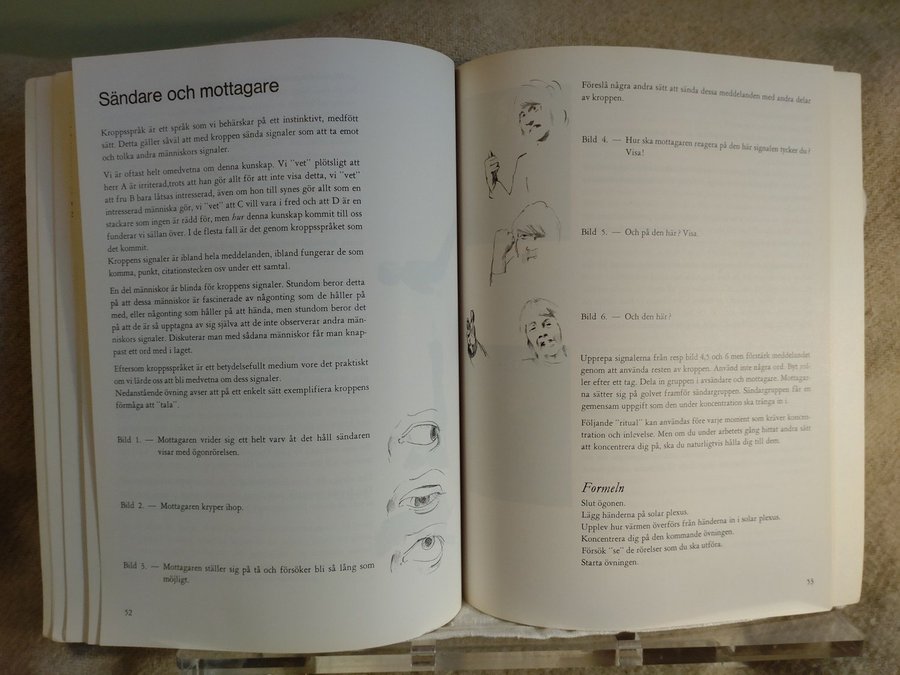 Sändare och mottagare
Kroppsspråk är ett språk som vi behärskar på ett instinktivt, medfött
sätt. Detta gäller såväl att med kroppen sända signaler som att ta emot
och tolka andra människors signaler.
Vi är oftast helt omedvetna om denna kunskap. Vi "vet" plötsligt att
herr A är irriterad,trots att han gör allt för att inte visa detta, vi "vet"
att fru B bara låtsas intresserad, även om hon till synes gör allt som en
intresserad människa gör, vi "vet" att C vill vara i fred och att D är en
stackare som ingen är rädd för, men hur denna kunskap kommit till oss
funderar vi sällan över. I de flesta fall är det genom kroppsspråket som
det kommit.
Kroppens signaler är ibland hela meddelanden, ibland fungerar de som
komma, punkt, citationstecken osv under ett samtal.
En del människor är blinda för kroppens signaler. Stundom beror detta
på att dessa människor är fascinerade av någonting som de håller på
med, eller någonting som håller på att hända, men stundom beror det
på att de är så upptagna av sig själva att de inte observerar andra män-
niskors signaler. Diskuterar man med sådana människor får man knap-
past ett ord med i laget.
Eftersom kroppsspråket är ett betydelsefullt medium vore det praktiskt
om vi lärde oss att bli medvetna om dess signaler.
Nedanstående övning avser att på ett enkelt sätt exemplifiera kroppens
förmåga att "tala".
Bild 1. — Mottagaren vrider sig ett helt varv åt det håll sändaren
visar med ögonrörelsen.
Bild 2. — Mottagaren kryper ihop.
Bild 3. — Mottagaren ställer sig på tå och försöker bli så lång som
möjligt.
52
Föreslå några andra sätt att sända dessa meddelanden med andra delar
av kroppen.
Bild 4. — Hur ska mottagaren reagera på den här signalen tycker du?
Visa!
Bild 5. — Och på den här? Visa.
Bild 6. — Och den här?
Upprepa signalerna från resp bild 4,5 och 6 men förstärk meddelandet
genom att använda resten av kroppen. Använd inte några ord. Byt rol-
ler efter ett tag. Dela in gruppen i avsändare och mottagare. Mottagar-
na sätter sig på golvet framför sändargruppen. Sändargruppen får en
gemensam uppgift som den under koncentration ska tränga in i.
Följande "ritual" kan användas före varje moment som kräver koncen-
tration och inlevelse. Men om du under arbetets gång hittat andra sätt
att koncentrera dig på, ska du naturligtvis hålla dig till dem.
Formeln
Slut ögonen.
Lägg händerna på solar plexus.
Upplev hur värmen överförs från händerna in i solar plexus.
Koncentrera dig på den kommande övningen.
Försök "se" de rörelser som du ska utföra.
Starta övningen.
53